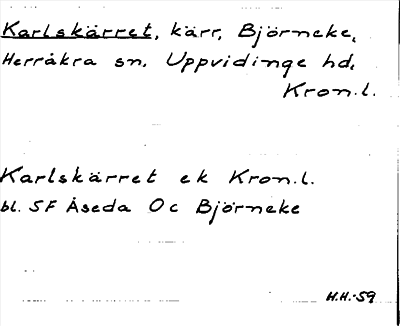 Karlskärret, kärr, Björneke,
Herråkra sn, Uppvidinge hd,
Kron.l.
Karlskärret ek Kron.l.
bl. SF Åseda Oc Björneke
H.H.-59